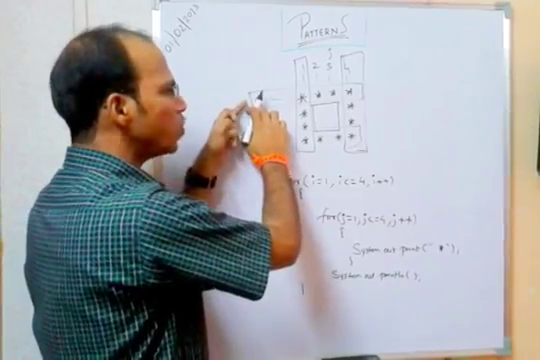 01/02/2023
PATTERNS
j
1 2 3 4
* * * *
* *
* *
* * * *
for(i=1, i<=4, i++)
{
for(j=1, j<=4, j++)
{
System.out.print(" * ");
}
System.out.println( );
}